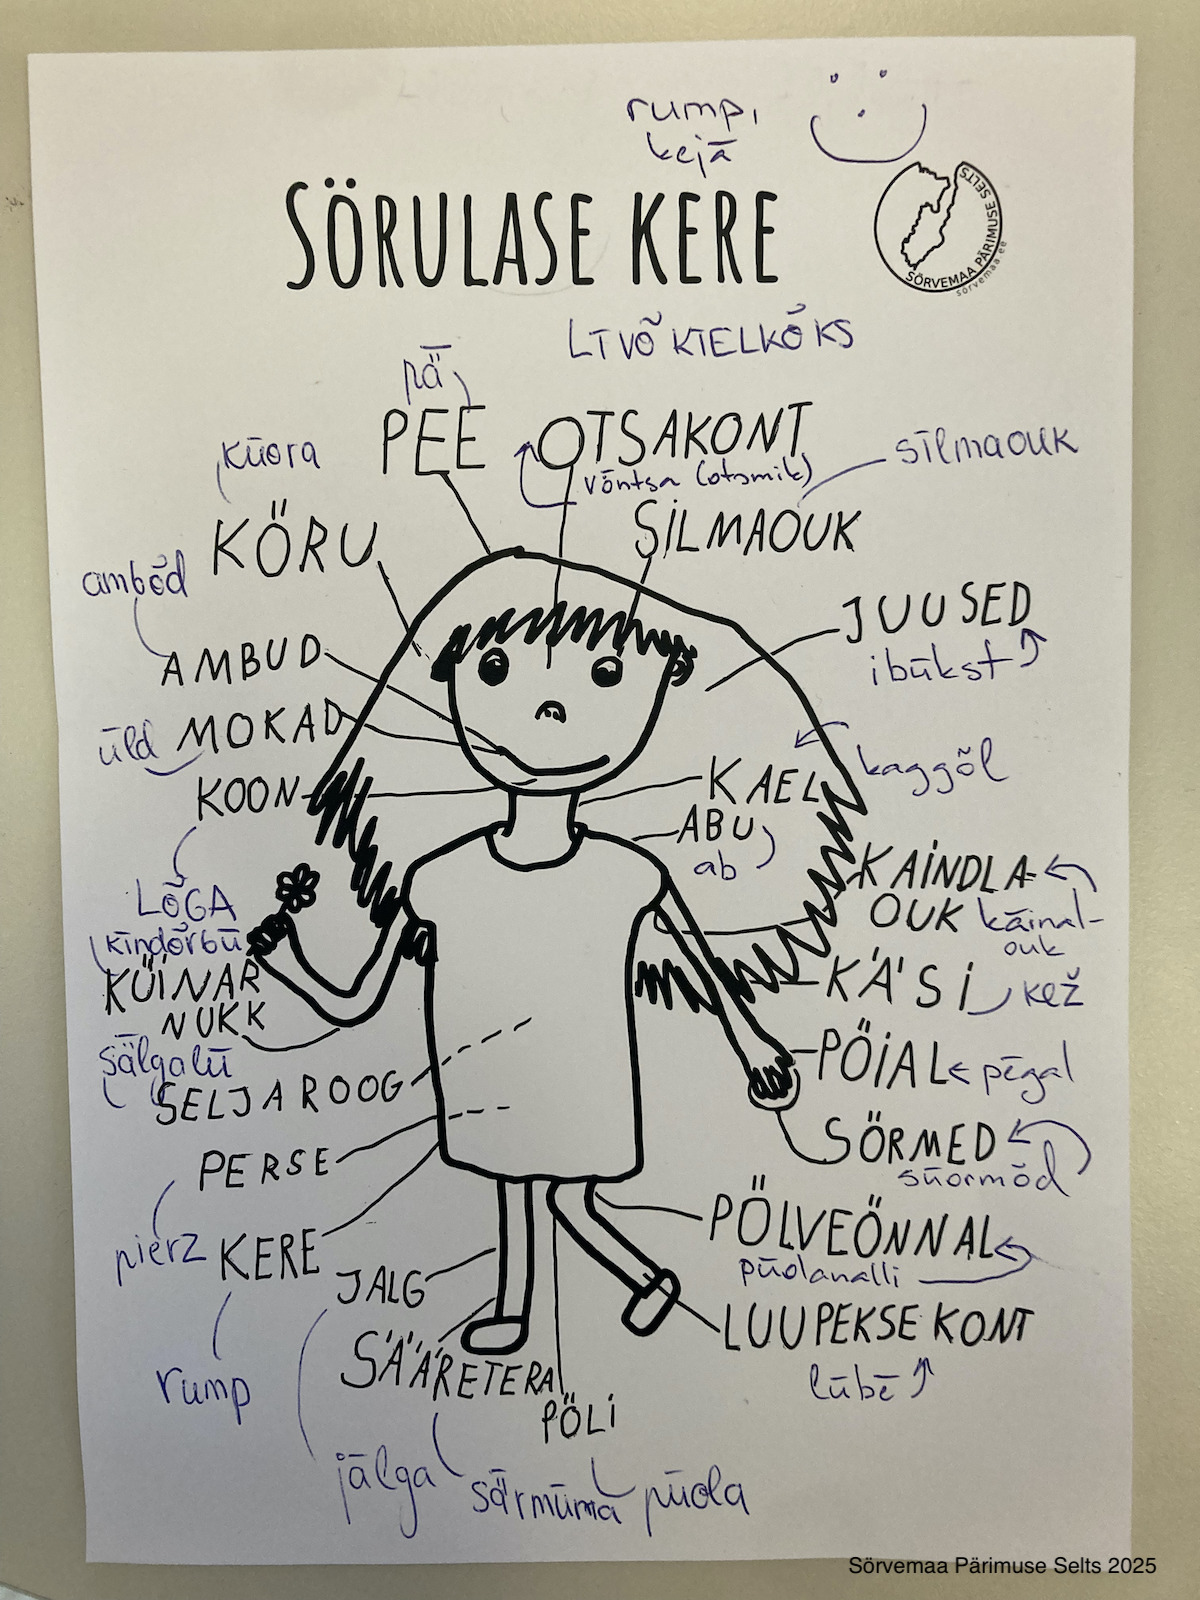 rump,
kejā
SÖRULASE KERE
SÖRVEMAA PÄRIMUSE SELTS
sorvemaa.ee
LĪVÕ KĪELKÕKS
pǟ
PEE
OTSAKONT
vȯntsa (otsmik)
kūora
sīlmaouk
KÖRU
SILMAOUK
ambȯd
AMBUD
JUUSED
ibūkst
ūld
MOKAD
KOON
KAEL
kaggõl
ABU
ab
LÕGA
KAINDLA-
OUK
käinal-
ouk
kīndȯrbū
KÜINAR
NUKK
KÄSI
kež
sǟlgalū
SELJAROOG
PÖIAL
pēgal
PERSE
SÖRMED
sūormõd
pierz
KERE
PÖLVEÖNNAL
pūolanalli
JALG
LUUPEKSE KONT
lūbē
rump
SÄÄRETERA
PÖLI
jālga
sǟrmūma
pūola
Sörvemaa Pärimuse Selts 2025